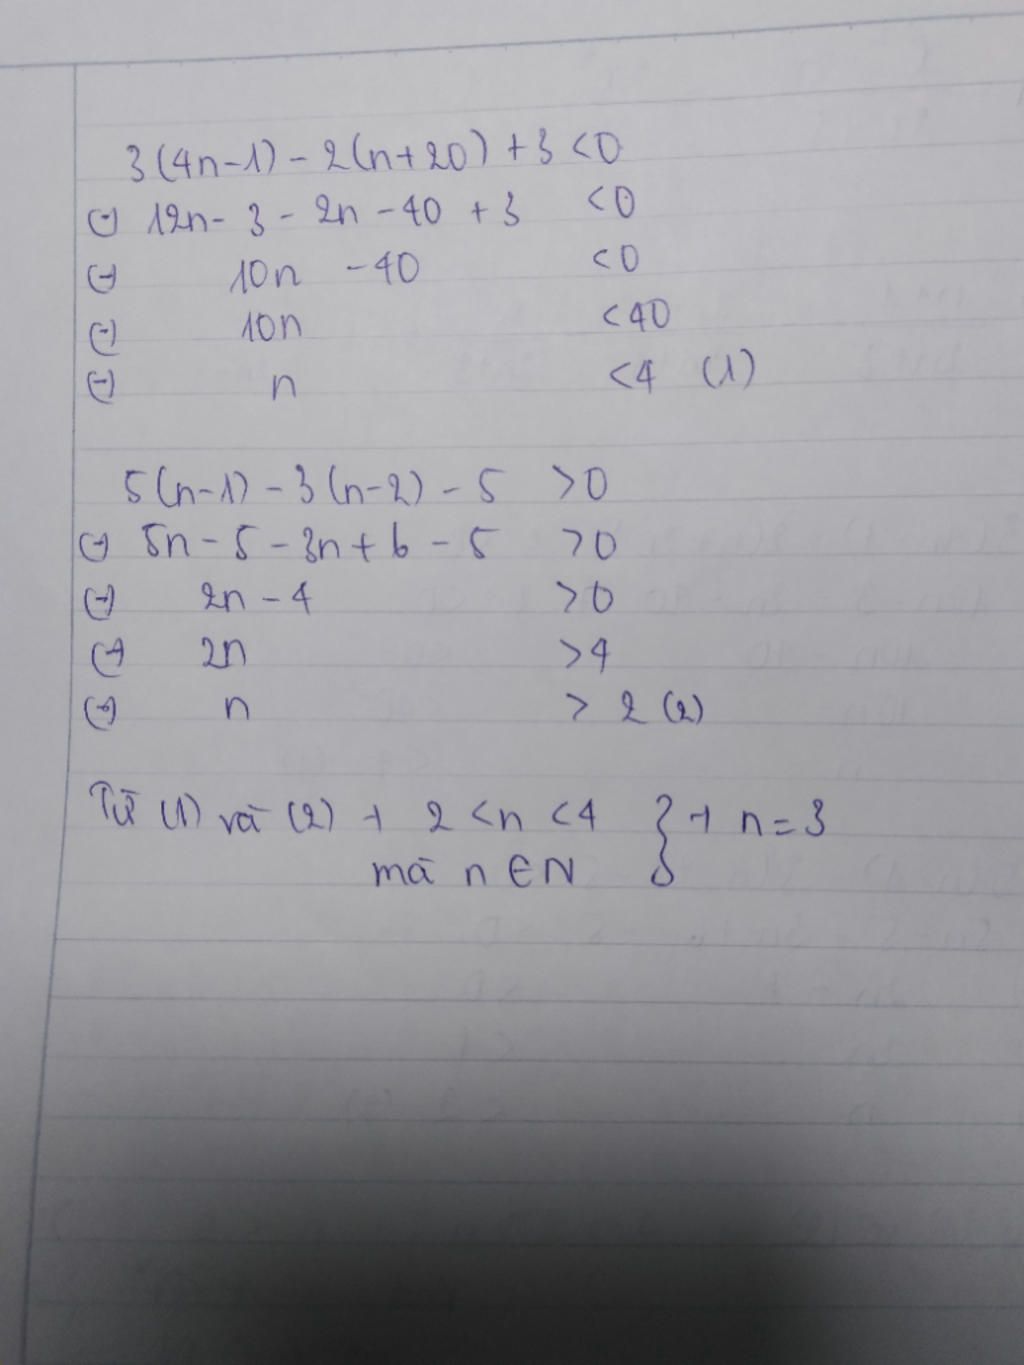 3(4n-1) - 2(n+20) + 3 < 0
⇔ 12n - 3 - 2n - 40 + 3 < 0
⇔ 10n - 40 < 0
⇔ 10n < 40
⇔ n < 4 (1)
5(n-1) - 3(n-2) - 5 > 0
⇔ 5n - 5 - 3n + 6 - 5 > 0
⇔ 2n - 4 > 0
⇔ 2n > 4
⇔ n > 2 (2)
Từ (1) và (2) → 2 < n < 4 } → n = 3
mà n ∈ N